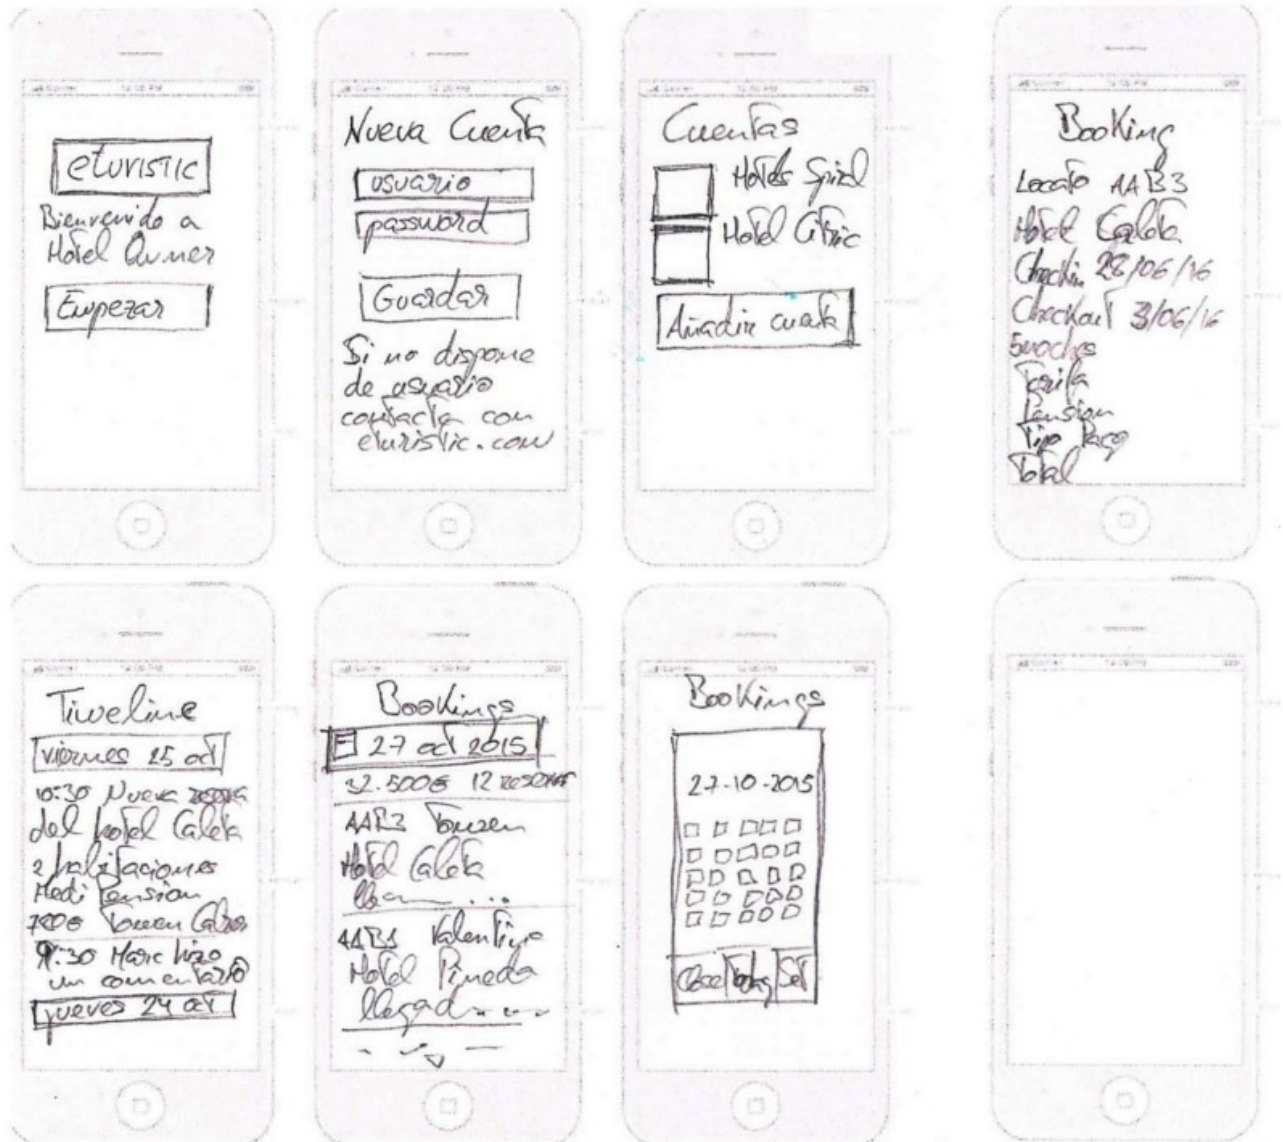 eturistic
Bienvenido a
Hotel Owner
Empezar
Nueva Cuenta
usuario
password
Guardar
Si no dispone
de usuario
contacta con
eturistic.com
Cuentas
Hotels Spiral
Hotel Citric
Añadir cuenta
Booking
AAB3
Hotel Caleta
Checkin 28/06/16
Checkout 3/06/16
5 noches
Tarifa
Pension
Tipo Pago
Total
Timeline
viernes 25 oct
10:30 Nueva reserva
del hotel Caleta
2 habitaciones
Medi Pension
700€
9:30 Marc hizo
un comentario
jueves 24 oct
Bookings
27 oct 2015
32.500€ 12 reservas
AAB3
Hotel Caleta
AAB1 Valentino
Hotel Pineda
llegad....
Bookings
27-10-2015
Close Today Set